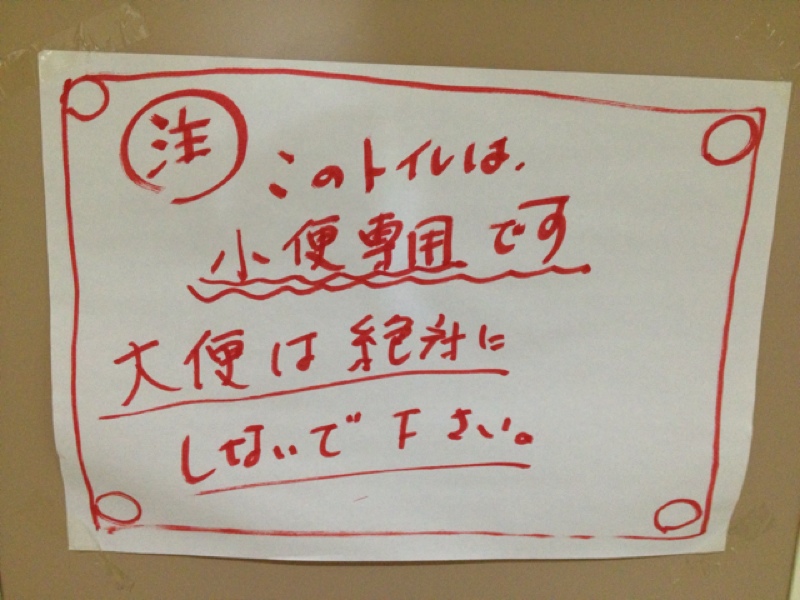 注 このトイレは、
小便専用です
大便は絶対に
しないで下さい。